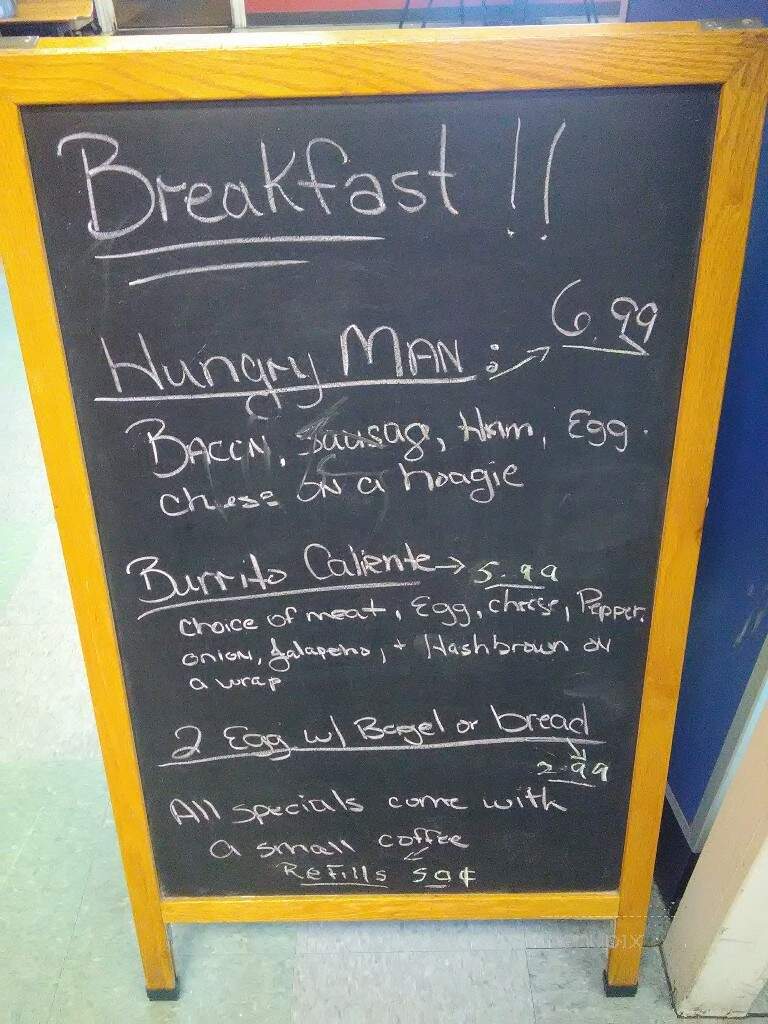 Breakfast !!
Hungry MAN : → 6.99
BACON, Sausage, Ham, Egg.
cheese ON a hoagie
Burrito Caliente → 5.99
choice of meat, Egg, cheese, Pepper,
onion, Jalapeno, + Hashbrown ON
a wrap
2 Egg w/ Bagel or bread
2.99
All specials come with
a small coffee
Refills 50¢